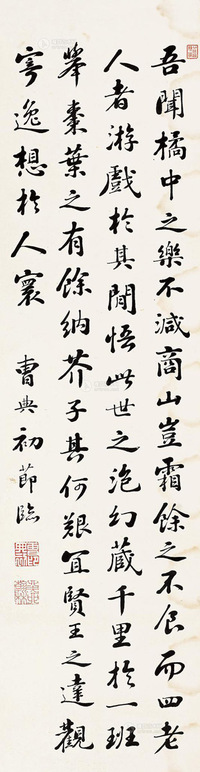 吾聞橘中之樂不減商山豈霜餘之不食而四老
人者游戲於其間悟此世之泡幻藏千里於一班
舉棗葉之有餘納芥子其何艱宜賢王之達觀
寄逸想於人寰
曹典初節臨